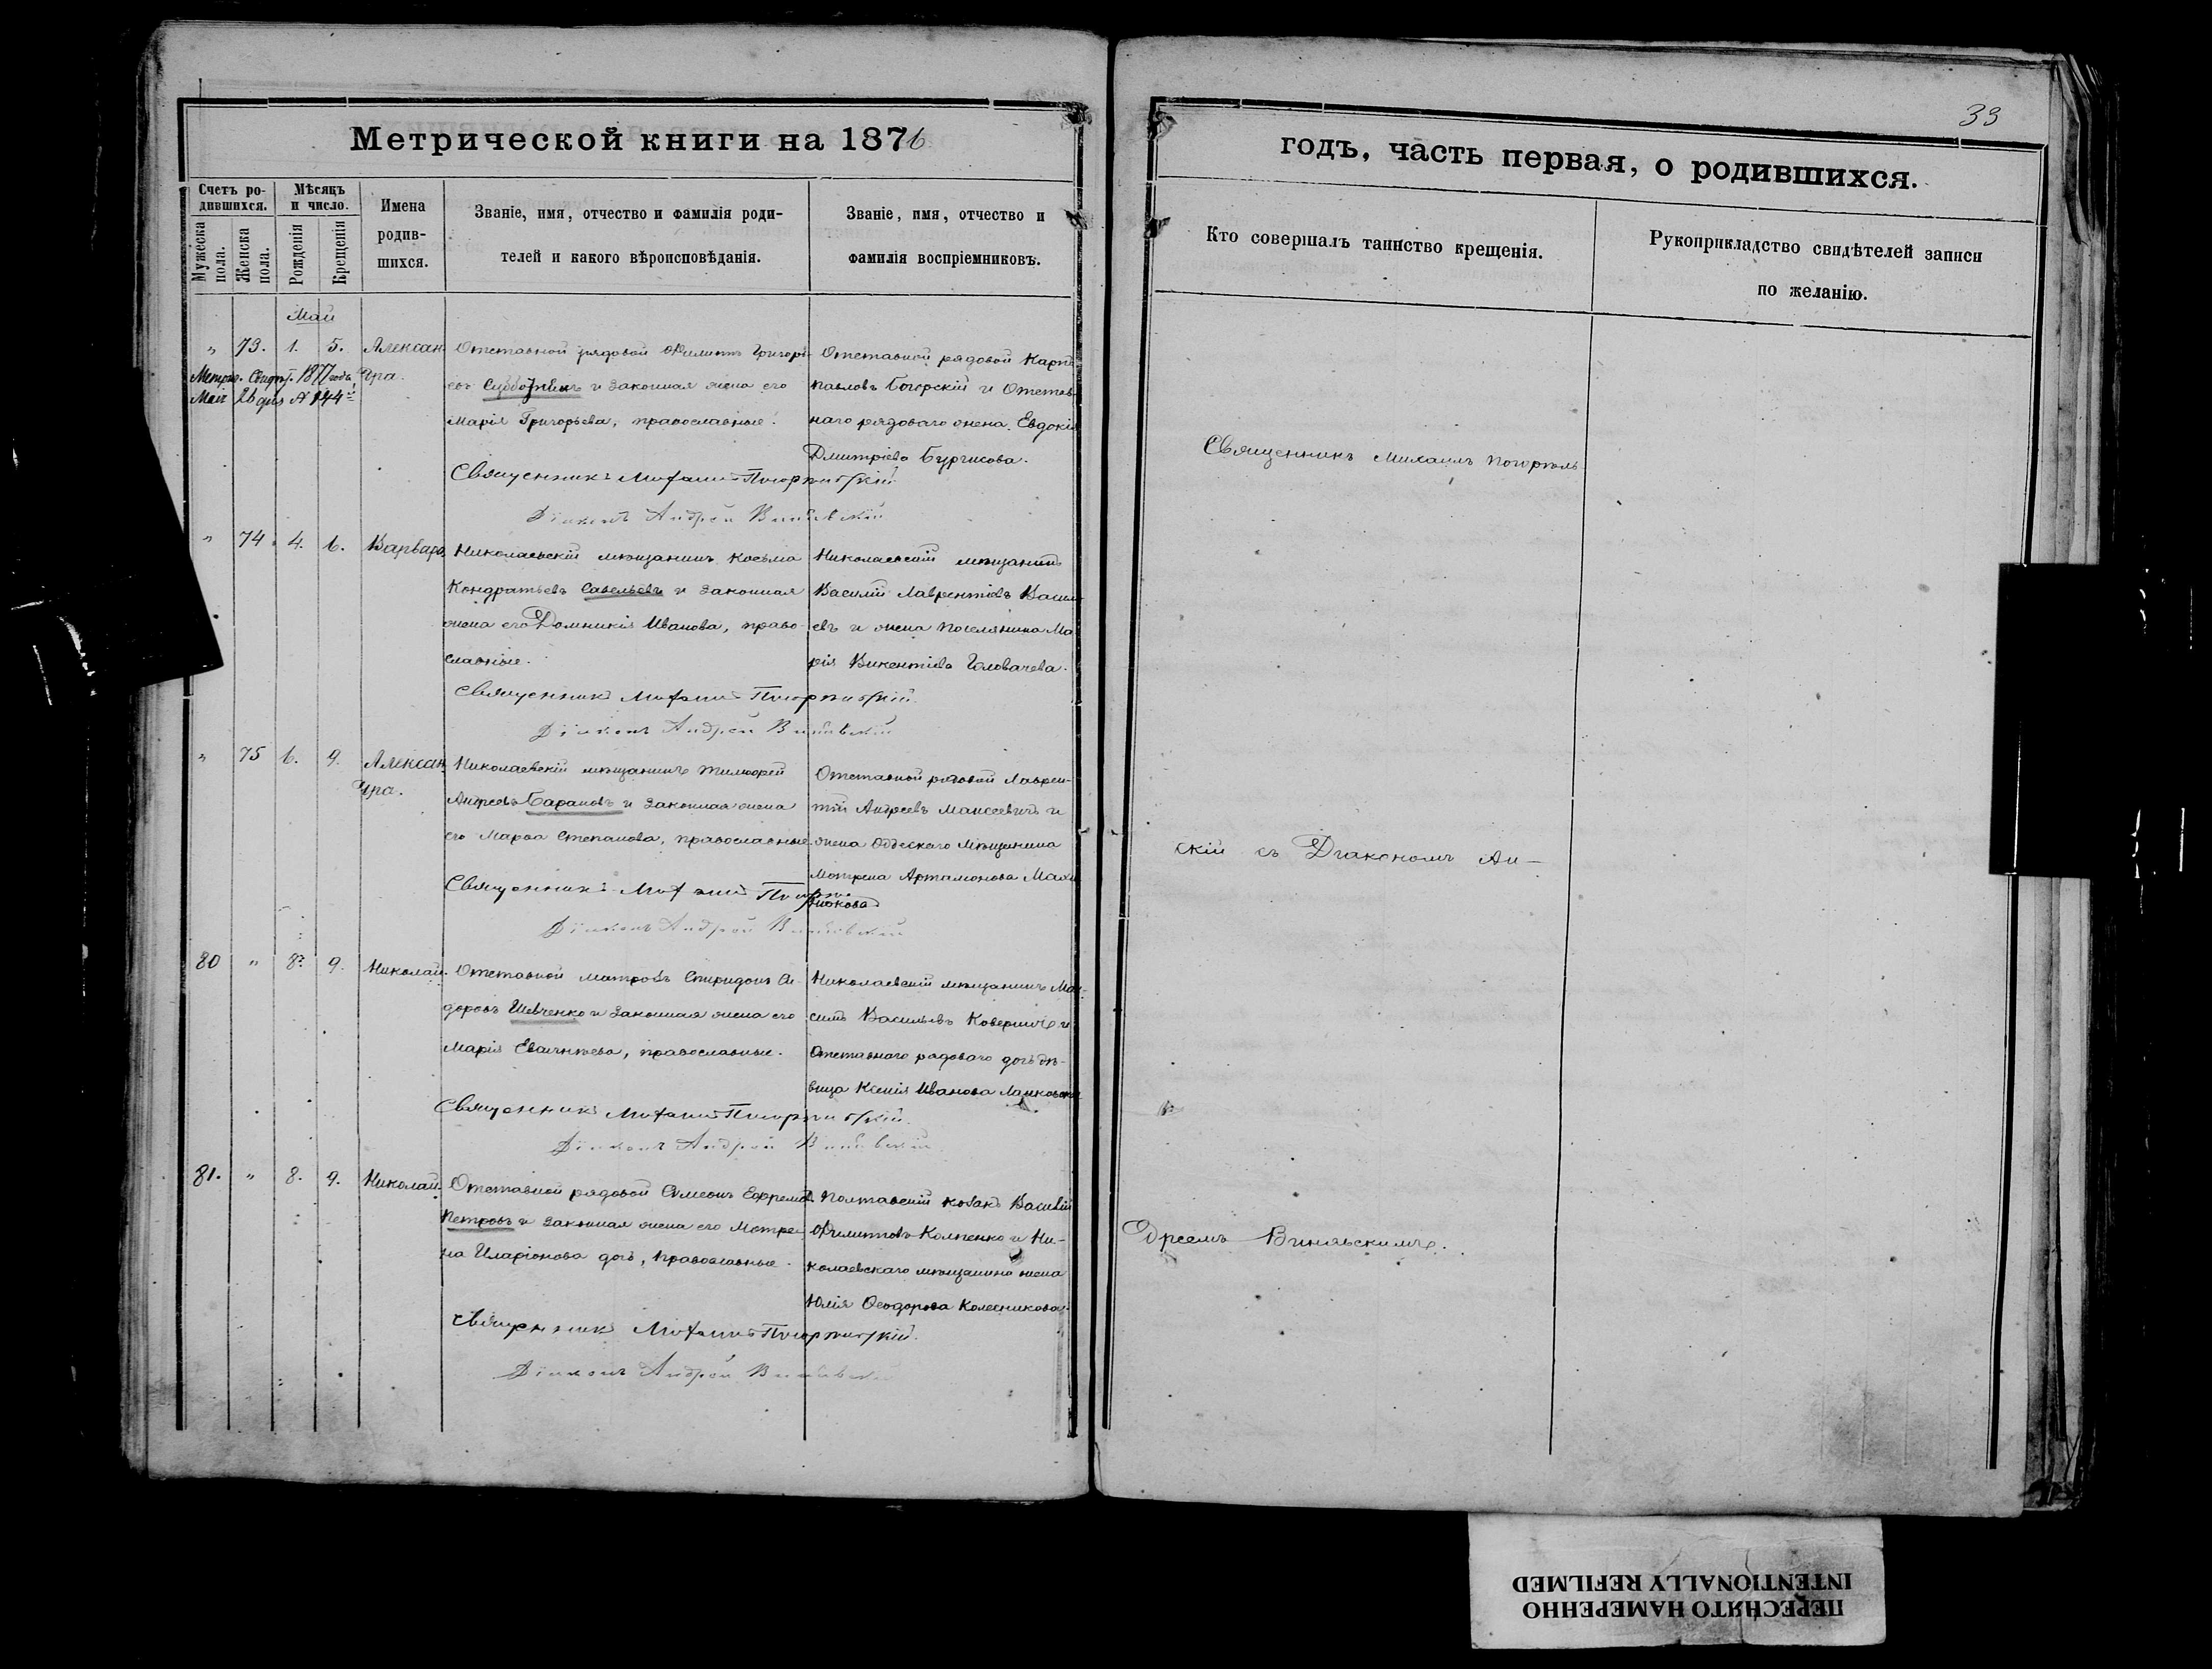 Метрической книги на 1876
Счетъ ро-
дившихся.
Мѣсяцъ
и число.
Мужеска
пола.
Женска
пола.
Рожденія
Крещенія
Имена
родив-
шихся.
Званіе, имя, отчество и фамилія роди-
телей и какого вѣроисповѣданія.
Званіе, имя, отчество и
фамилія воспріемниковъ.
Май
" 73. 1. 5. Алексан-
дра.
Метрич. Свидѣт. 1877 года,
Мая 26 дня № 144
Отставной рядовой Филиппъ Григорь-
евъ и законная жена его
Марія Григорьева, православные.
Отставной рядовой Карпъ
Павловъ Богорскій и Отстав-
наго рядоваго жена Евдокія
Дмитріева
Священникъ Михаилъ Погорѣльскій
Діаконъ Андрей
" 74. 4. 6. Варвара
Николаевскій мѣщанинъ Косьма
Кондратьевъ Савельевъ и законная
жена его Домникія Иванова, право-
славные.
Николаевскій мѣщанинъ
Василій Лаврентіевъ Василь-
евъ и жена поселянина Ма-
рія Викентіева Головачева.
Священникъ Михаилъ Погорѣльскій.
Діаконъ Андрей
" 75 6. 9. Алексан-
дра.
Николаевскій мѣщанинъ Тимофей
Андреевъ Барановъ и законная жена
его Марѳа Степанова, православные.
Отставной рядовой Лаврен-
тій Андреевъ Маисеевичъ и
жена Одесскаго мѣщанина
Мотрена Артамонова
Священникъ Михаилъ
Діаконъ Андрей
80 " 8. 9. Николай.
Отставной матрозъ Спиридонъ Си-
доровъ Шевченко и законная жена его
Марія православные.
Николаевскій мѣщанинъ Мак-
симъ Васильевъ и
Отставнаго рядоваго дочь дѣ-
вица Ксенія Иванова
Священникъ Михаилъ Погорѣльскій.
Діаконъ Андрей
81. " 8. 9. Николай.
Отставной рядовой Симеонъ Ефремовъ
Петровъ и законная жена его Мотре-
на Иларіонова дочь, православные.
Полтавскій козакъ Василій
Филипповъ и Ни-
колаевскаго мѣщанина жена
Юлія Ѳеодорова Колесникова.
Священникъ Михаилъ Погорѣльскій.
Діаконъ Андрей
33
годъ, часть первая, о родившихся.
Кто совершалъ таинство крещенія.
Рукоприкладство свидѣтелей записи
по желанію.
Священникъ Михаилъ Погорѣль-
скій съ Діакономъ Ан-
дреемъ
ПЕРЕСНЯТО НАМЕРЕННО
INTENTIONALLY REFILMED